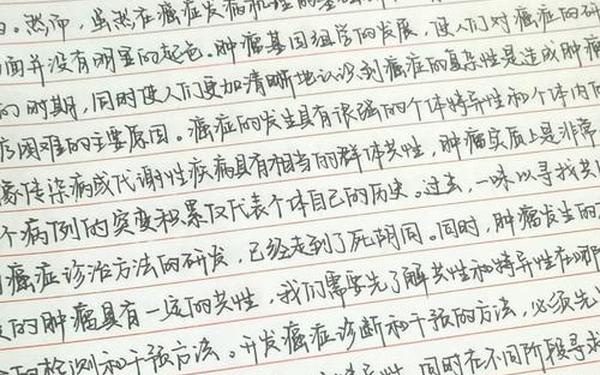 。然而，虽然在癌症发病机理的基
面并没有明显的起色。肿瘤基因组学的发展，使人们对癌症的研
的时期，同时使人们更加清晰地认识到癌症的复杂性是造成肿瘤
困难的主要原因。癌症的发生具有很强的个体特异性和个体内
象传染病或代谢性疾病具有相当的群体共性，肿瘤实质上是非常
个病例的突变积累仅代表个体自己的历史。过去，一味以寻找共
癌症诊治方法的研发，已经走到了死胡同。同时，肿瘤发生的
的肿瘤具有一定的共性，我们需要先了解共性和特异性在哪
的检测和干预方法。开发癌症诊断和干预的方法，必须先
同时在不同阶段寻求